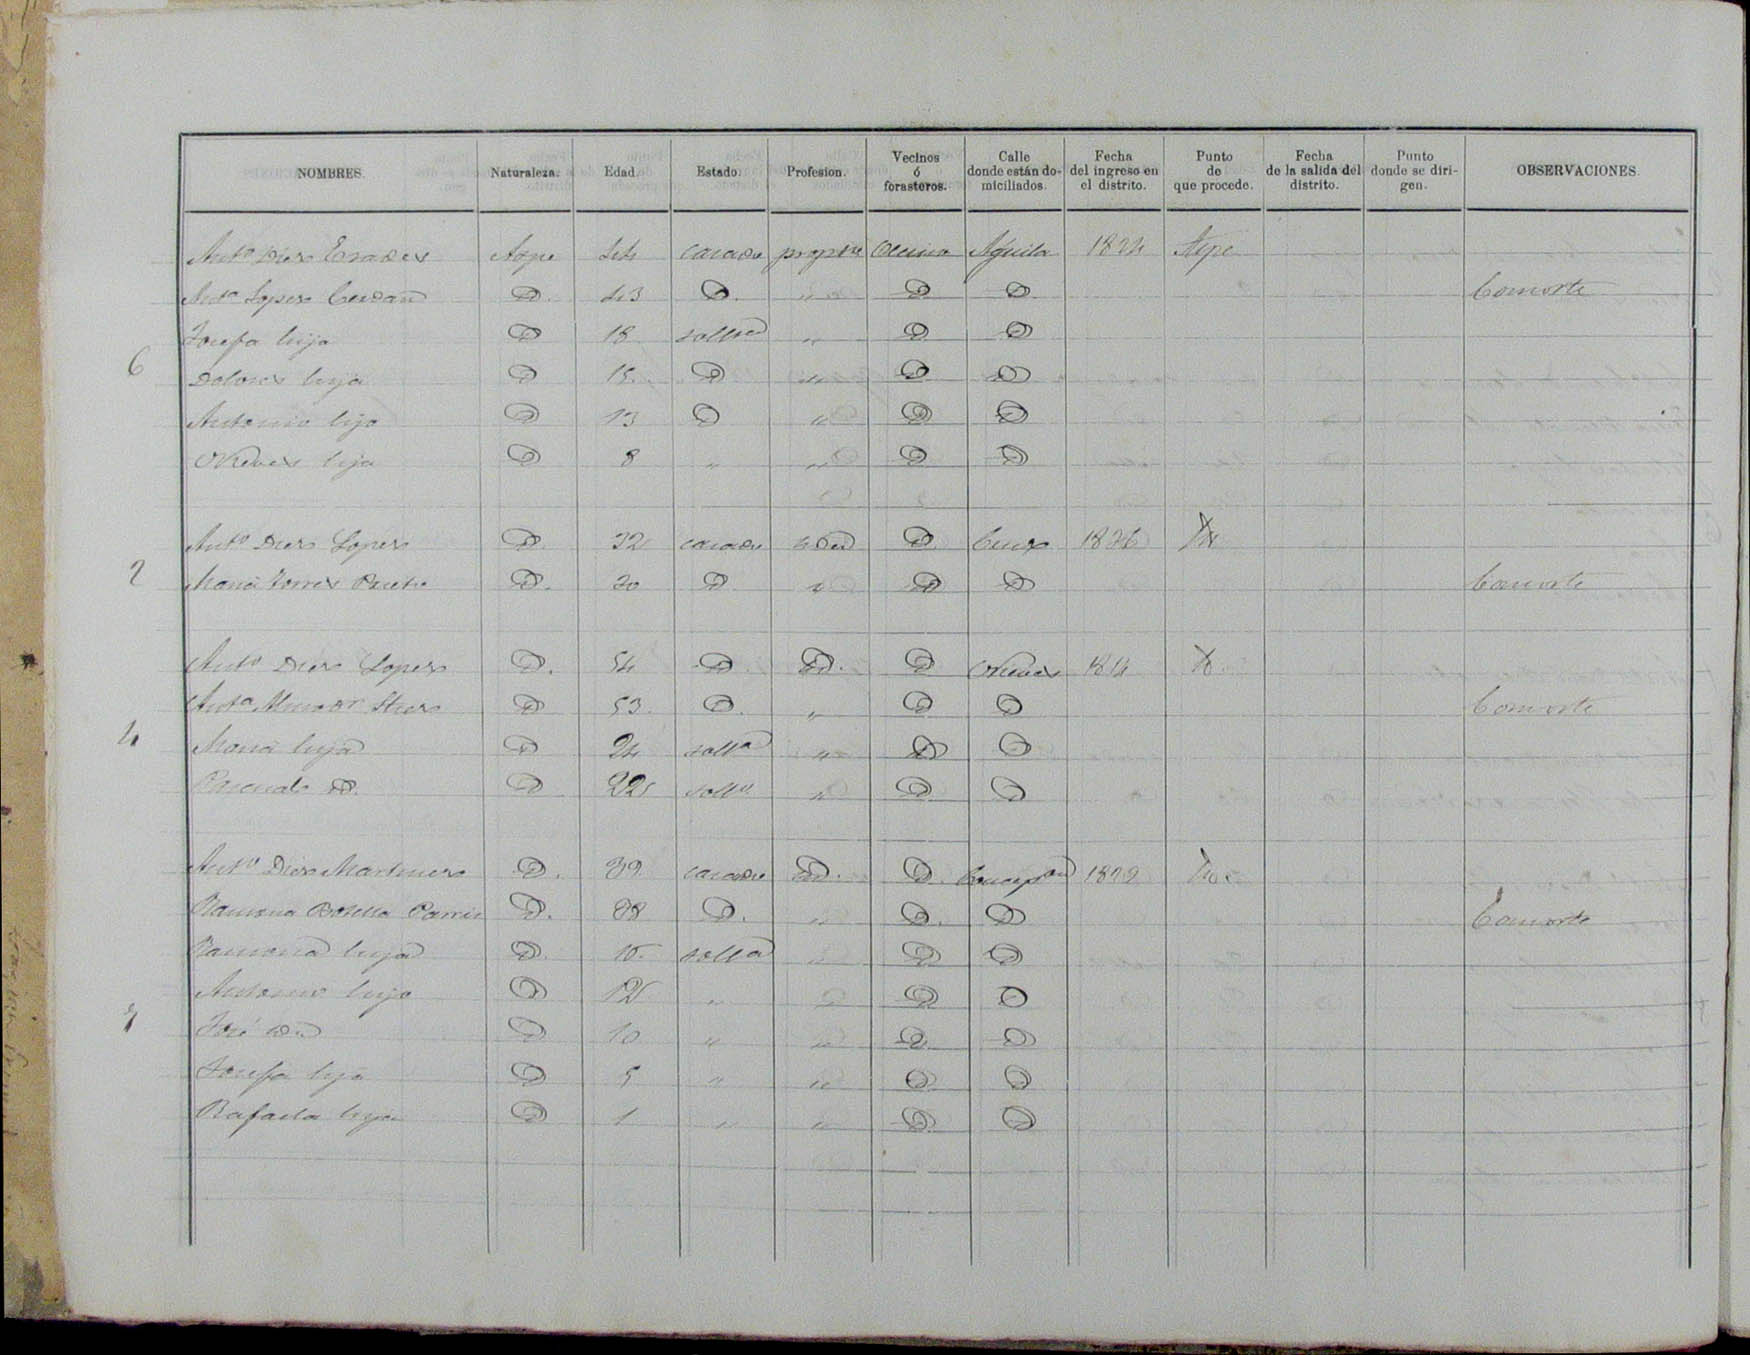 NOMBRES. Naturaleza. Edad. Estado. Profesion. Vecinos ó forasteros. Calle donde están domiciliados. Fecha del ingreso en el distrito. Punto de que procede. Fecha de la salida del distrito. Punto donde se dirigen. OBSERVACIONES.
Antº Diez Erades Aspe 44 casado Aguila 1824 Aspe
Antª Lopez Cerdan D. 43 D. " D D Consorte
Josefa hija D 18 soltª " D D
6
Dolores hija D 15 D " D D
Antonio hijo D 13 D " D D
Nieves hija D 8 " " D D
Antº Diez Lopez D. 32 casado D Cruz 1836
2
Maria Torres D. 30 D " D D Consorte
Antº Diez Lopez D. 54 D D. D Nieves 1814
Antª D 53 D. " D D Consorte
4
Maria hija D 24 soltª " D D
Pascual D. D 22 soltº " D D
Antº Diez Martinez D. 39 casado D. D. Concepon 1829
Ramona Botella D. 38 D. " D. D Consorte
Ramona hija D. 15 soltª " D D
Antonio hijo D 12 " " D D
7
José D 10 " " D D
Josefa hija D 5 " " D D
Rafaela hija D 1 " " D D